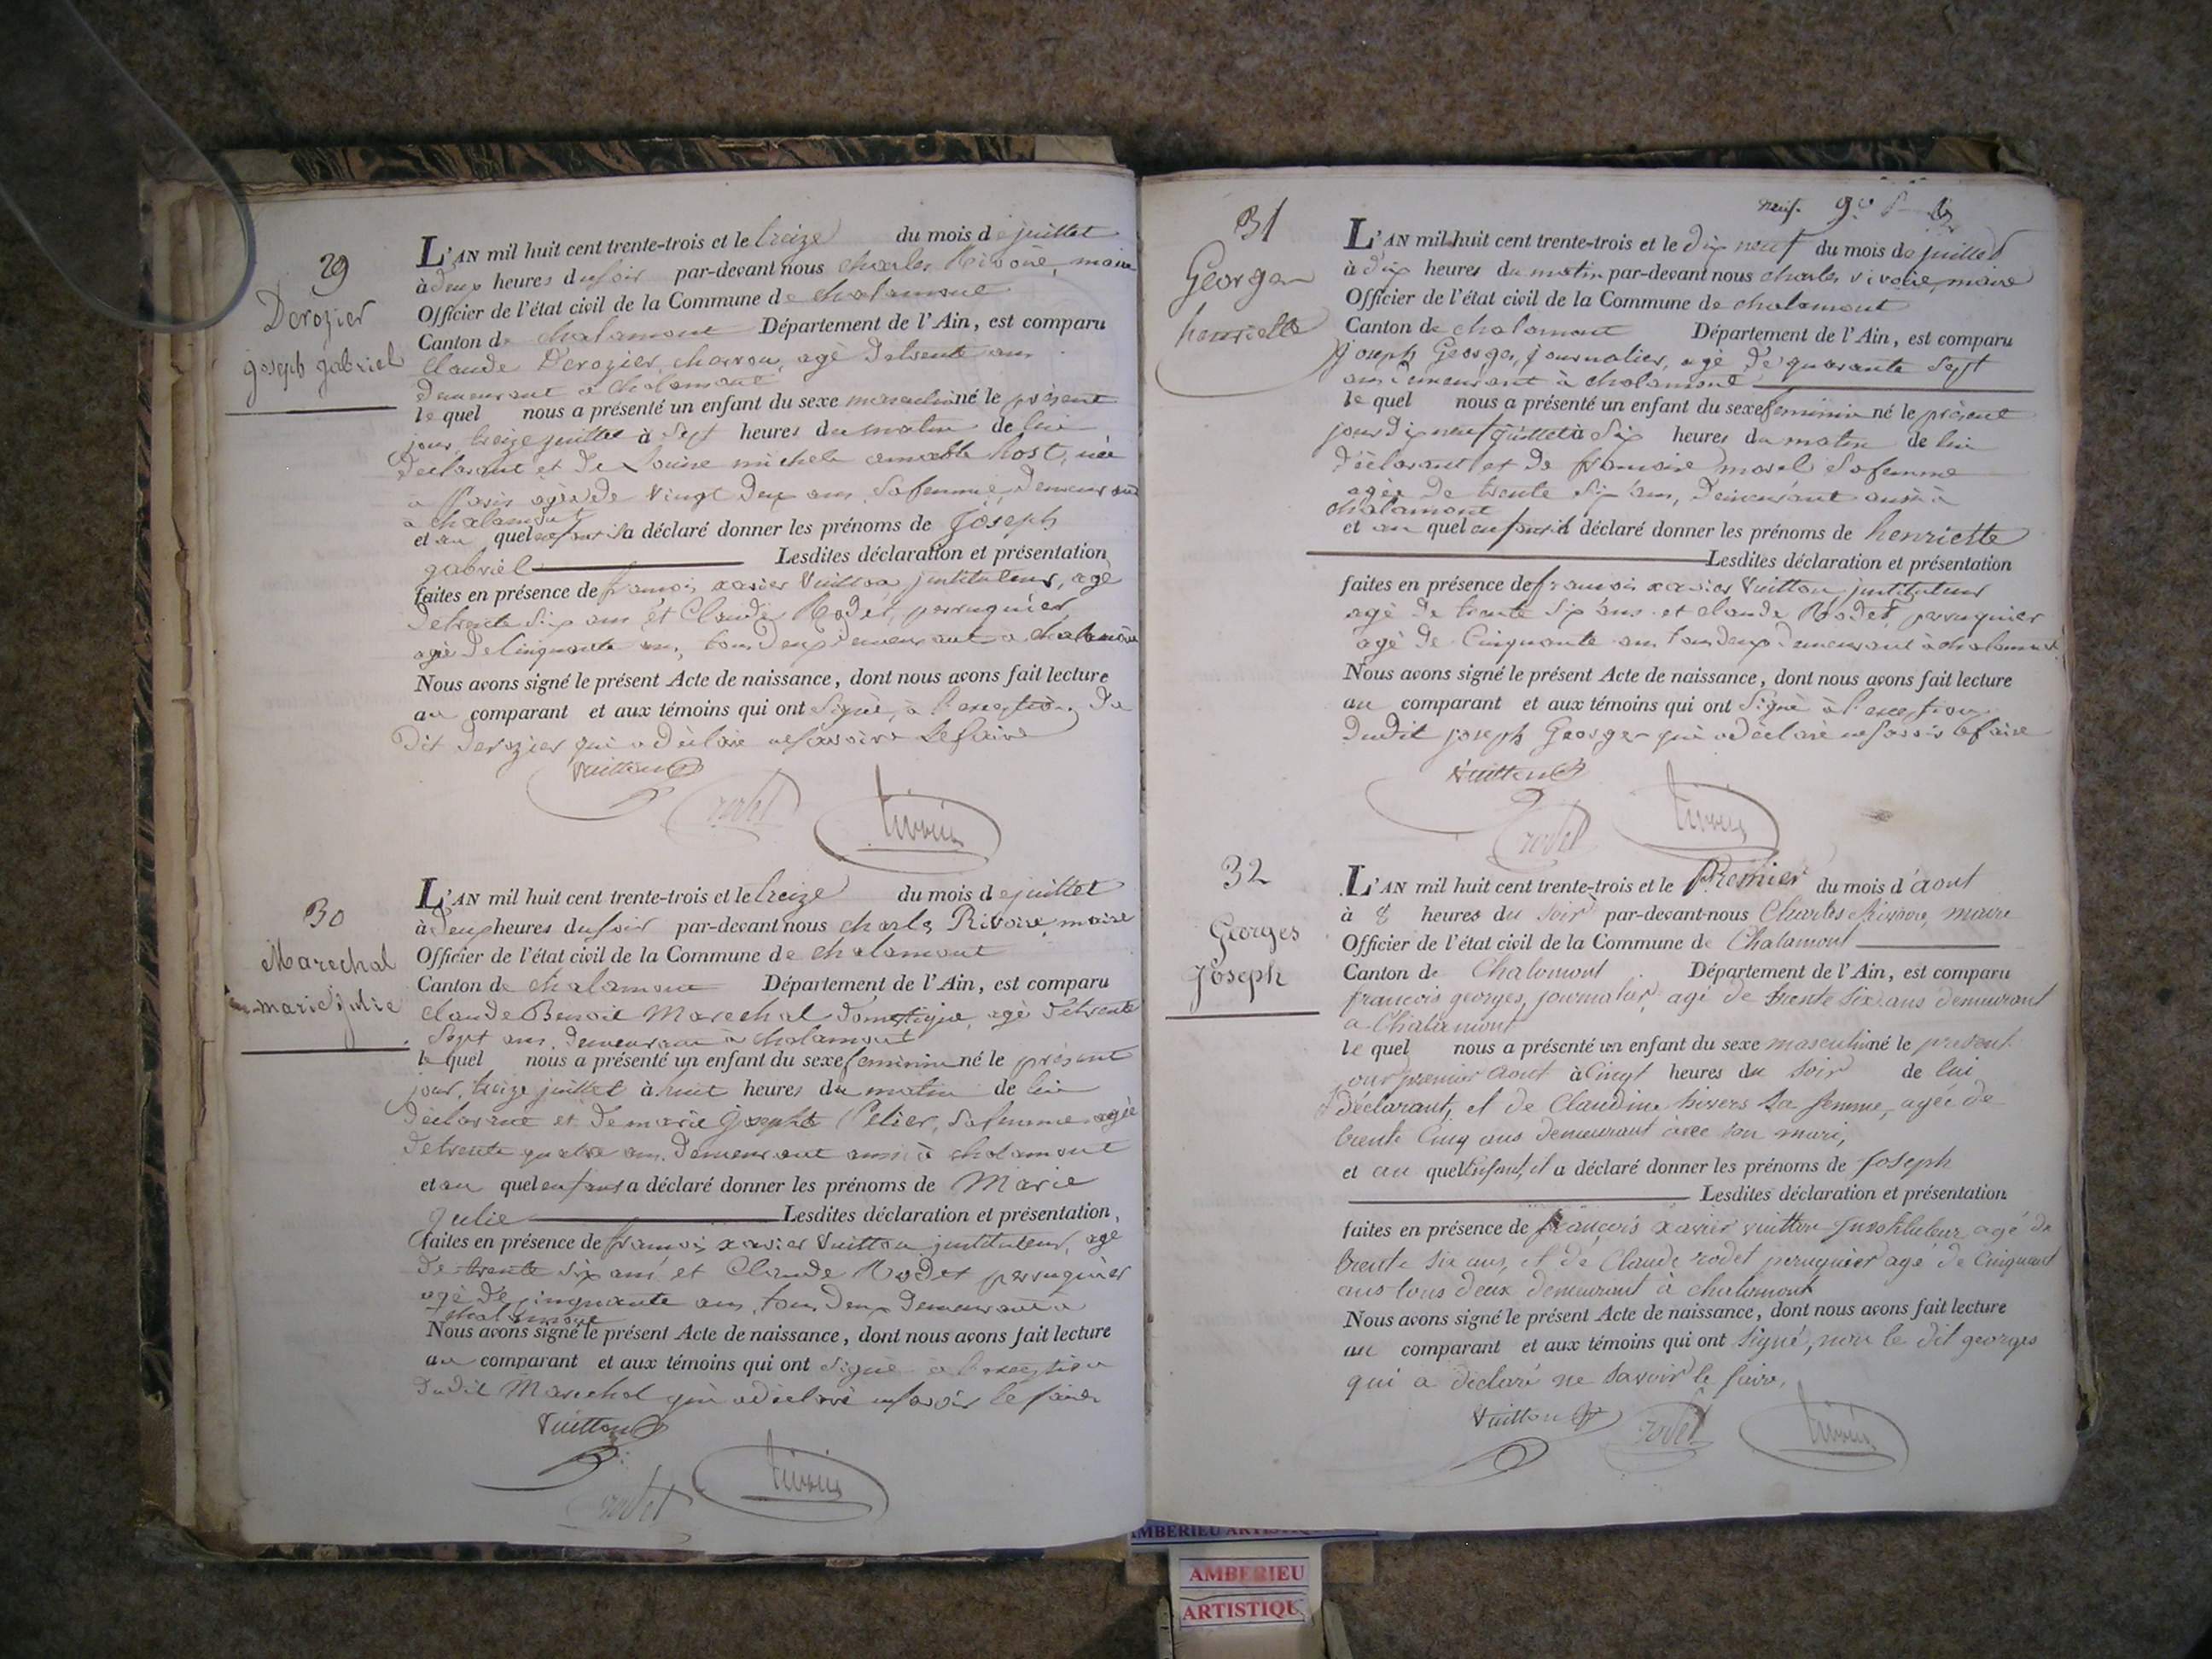 29
Derozier
joseph gabriel
L'AN mil huit cent trente-trois et le treize du mois de juillet
à deux heures du soir par-devant nous charles Rivoire, maire
Officier de l'état civil de la Commune de chalamont
Canton de chalamont Département de l'Ain, est comparu
Claude Derozier, charron, agé de trente ans
demeurant a chalamont
le quel nous a présenté un enfant du sexe masculin né le présent
jour, treize juillet à sept heures du matin de lui
déclarant et de Louise michele amable host, née
a Paris agée de vingt deux ans, sa femme, demeurant
a chalamont
et au quel enfant il a déclaré donner les prénoms de Joseph
gabriel Lesdites déclaration et présentation
faites en présence de francois xavier Vuitton instituteur, agé
de trente six ans et Claude Rodet, perruquier,
agé de cinquante ans, tous deux demeurant a chalamont
Nous avons signé le présent Acte de naissance, dont nous avons fait lecture
au comparant et aux témoins qui ont signé, à l'exception du
dit derozier qui a déclaré ne savoire le faire
Vuitton
rodet
rivoire
30
Marechal
marie julie
L'AN mil huit cent trente-trois et le treize du mois de juillet
à deux heures du soir par-devant nous charles Rivoire, maire
Officier de l'état civil de la Commune de chalamont
Canton de chalamont Département de l'Ain, est comparu
claude Benoit Marechal domestique, agé de trente
sept ans, demeurant à chalamont
le quel nous a présenté un enfant du sexe feminin né le présent
jour, treize juillet à huit heures du matin de lui
déclarant et de marie josephte Pelier, sa femme agée
de trente quatre ans, demeurant aussi à chalamont
et au quel enfant a déclaré donner les prénoms de Marie
Julie Lesdites déclaration et présentation,
faites en présence de francois xavier Vuitton instituteur, agé
de trente six ans et Claude Rodet perruquier
agé de cinquante ans, tous deux demeurant a
chalamont
Nous avons signé le présent Acte de naissance, dont nous avons fait lecture
au comparant et aux témoins qui ont signé à l'exception
dudit Marechal qui a déclaré ne savoir le faire
Vuitton
rodet
rivoire
neuf. 9e
31
Georges
henriette
L'AN mil huit cent trente-trois et le dix neuf du mois de juillet
à dix heures du matin par-devant nous charles rivoire, maire
Officier de l'état civil de la Commune de chalamont
Canton de chalamont Département de l'Ain, est comparu
joseph Georges, journalier, agé de quarante sept
ans demeurant à chalamont
le quel nous a présenté un enfant du sexe feminin né le présent
jour dix neuf juillet à six heures du matin de lui
déclarant et de francoise morel sa femme
agée de trente six ans, demeurant aussi à
chalamont
et au quel enfant il déclaré donner les prénoms de henriette
Lesdites déclaration et présentation
faites en présence de francois xavier Vuitton instituteur
agé de trente six ans et claude Rodet, perruquier
agé de Cinquante ans tous deux demeurant à chalamont
Nous avons signé le présent Acte de naissance, dont nous avons fait lecture
au comparant et aux témoins qui ont signé à l'exception
dudit joseph Georges qui a déclaré ne savoir le faire
Vuitton
rodet
rivoire
32
Georges
Joseph
L'AN mil huit cent trente-trois et le Premier du mois d'aout
à 8 heures du soir par-devant-nous Charles Rivoire, maire
Officier de l'état civil de la Commune de Chalamont
Canton de Chalamont Département de l'Ain, est comparu
francois georges, journalier, agé de trente six ans demeurant
a Chalamont
le quel nous a présenté un enfant du sexe masculin né le présent
jour premier aout à Cinq heures du soir de lui
déclarant, et de Claudine sa femme, agée de
trente Cinq ans demeurant avec son mari,
et au quel enfant, il a déclaré donner les prénoms de Joseph
Lesdites déclaration et présentation
faites en présence de françois xavier vuitton Instituteur agé de
trente six ans, et de Claude rodet peruquier agé de Cinquant
ans tous deux demeurant à chalamont
Nous avons signé le présent Acte de naissance, dont nous avons fait lecture
au comparant et aux témoins qui ont signé, non le dit georges
qui a déclaré ne savoir le faire,
Vuitton
rodet
rivoire
AMBERIEU
AMBERIEU
ARTISTIQUE